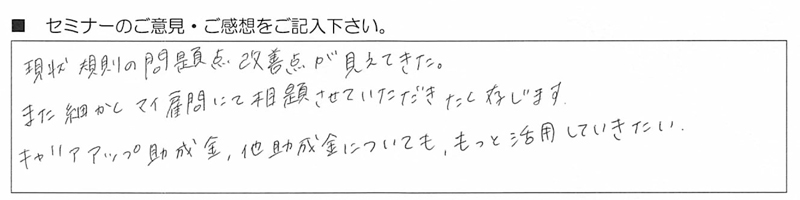 ■ セミナーのご意見・ご感想をご記入下さい。
現状 規則の問題点 改善点が見えてきた。
また細かしマイ雇問にて相題させていただきたく存じます.
キャリアアップ助成金, 他助成金についても, もっと活用していきたい.